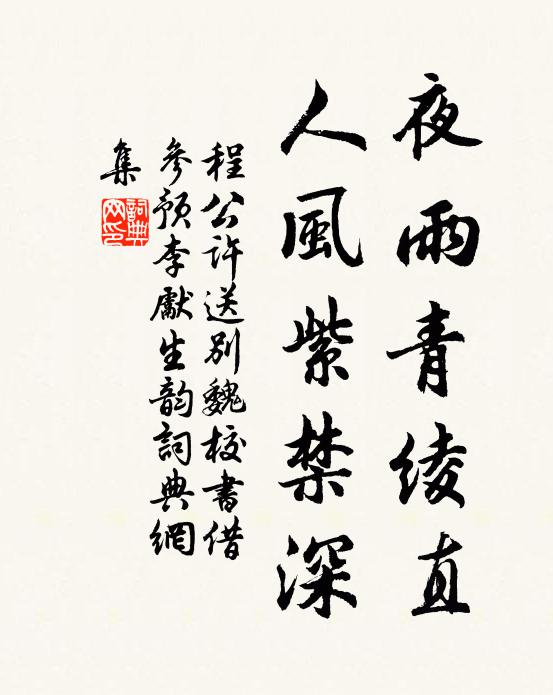 夜雨青綾直
人風紫禁深
程公許送別魏校書借
參預李獻生韵詞典網
集
詞典
网印